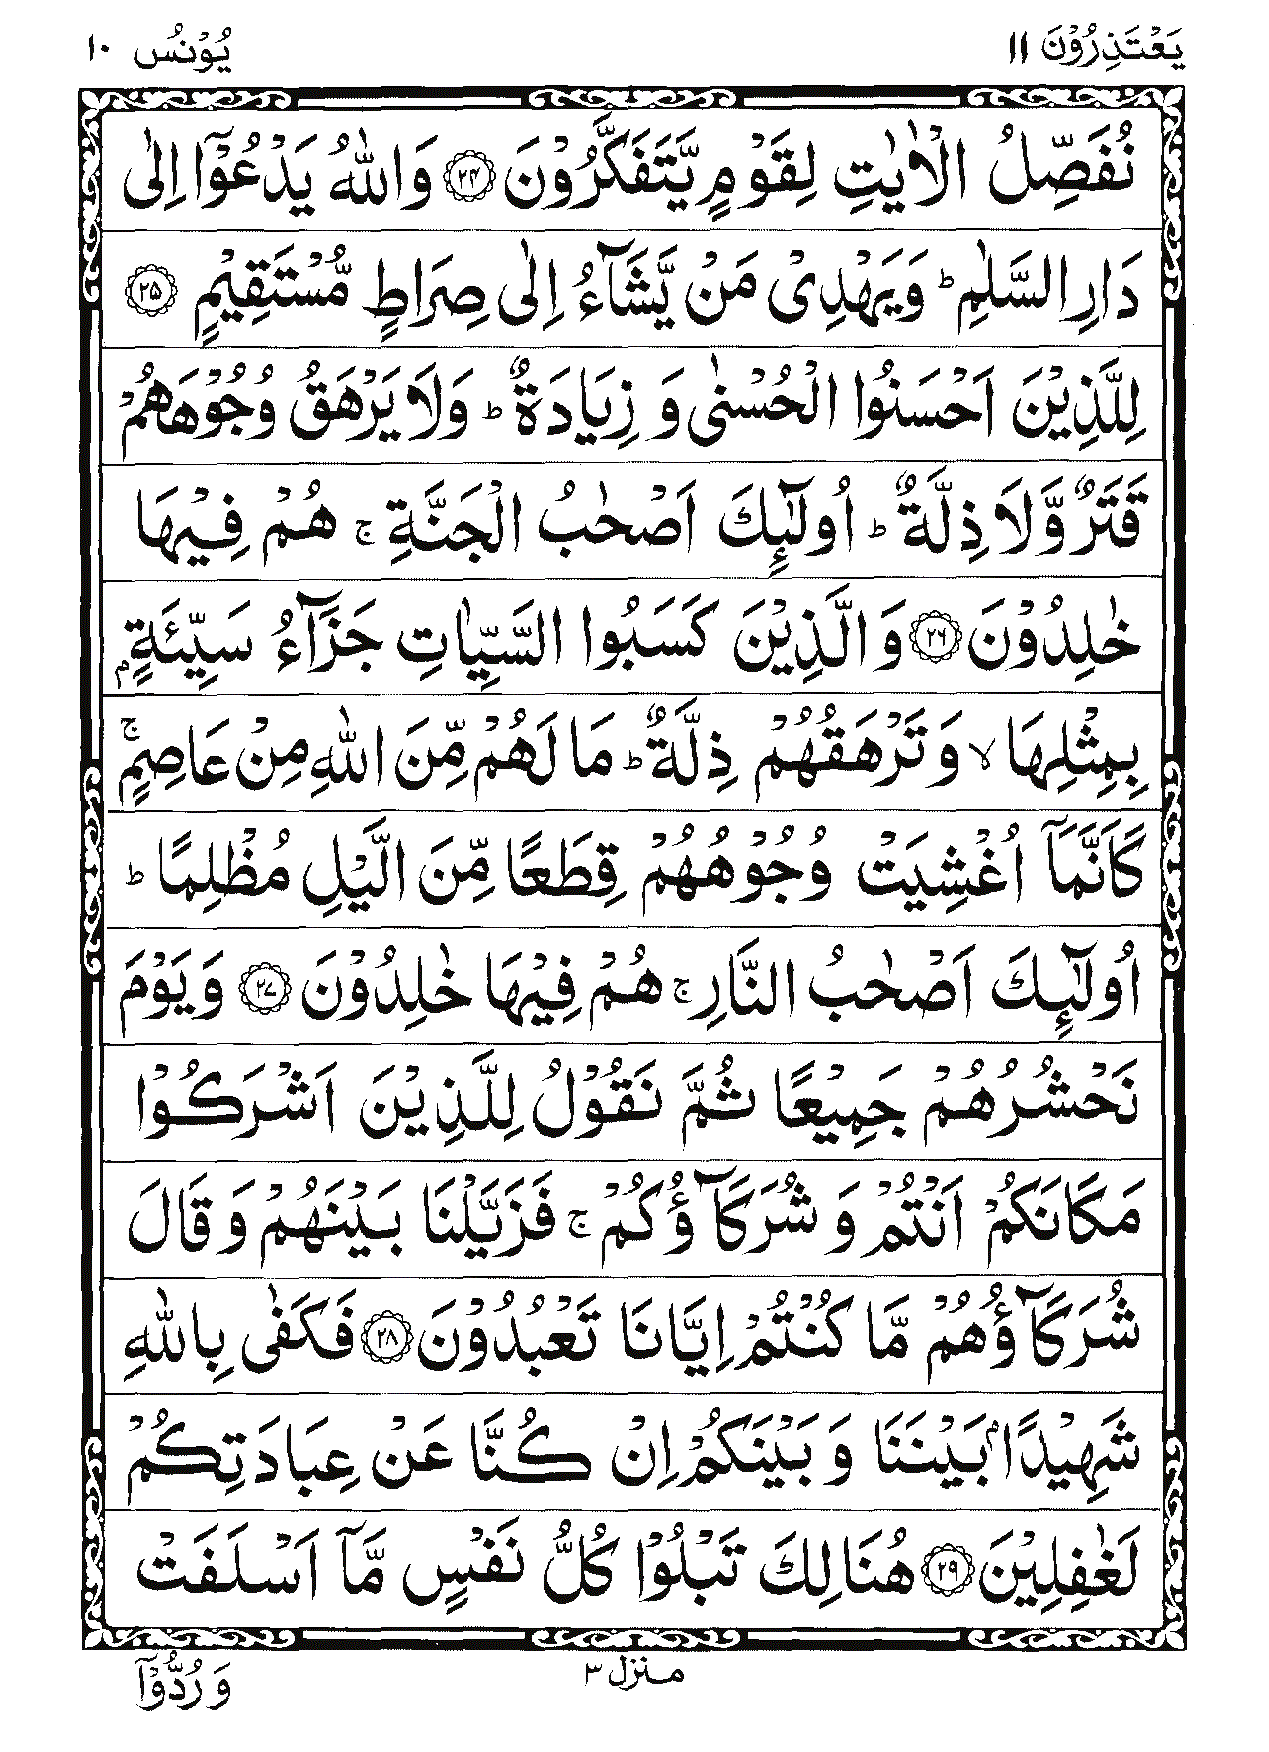 يَعْتَذِرُوْنَ ١١
يُوْنُس ١٠
نُفَصِّلُ الْاٰيٰتِ لِقَوْمٍ يَّتَفَكَّرُوْنَ ۝٢٤ وَاللّٰهُ يَدْعُوْۤا اِلٰى
دَارِ السَّلٰمِ ؕ وَيَهْدِىْ مَنْ يَّشَآءُ اِلٰى صِرَاطٍ مُّسْتَقِيْمٍ ۝٢٥
لِلَّذِيْنَ اَحْسَنُوا الْحُسْنٰى وَ زِيَادَةٌ ؕ وَلَا يَرْهَقُ وُجُوْهَهُمْ
قَتَرٌ وَّلَا ذِلَّةٌ ؕ اُولٰٓئِكَ اَصْحٰبُ الْجَنَّةِ ۚ هُمْ فِيْهَا
خٰلِدُوْنَ ۝٢٦ وَ الَّذِيْنَ كَسَبُوا السَّيِّاٰتِ جَزَآءُ سَيِّئَةٍۭ
بِمِثْلِهَا ۙ وَ تَرْهَقُهُمْ ذِلَّةٌ ؕ مَا لَهُمْ مِّنَ اللّٰهِ مِنْ عَاصِمٍ ۚ
كَاَنَّمَاۤ اُغْشِيَتْ وُجُوْهُهُمْ قِطَعًا مِّنَ الَّيْلِ مُظْلِمًا ؕ
اُولٰٓئِكَ اَصْحٰبُ النَّارِ ۚ هُمْ فِيْهَا خٰلِدُوْنَ ۝٢٧ وَيَوْمَ
نَحْشُرُهُمْ جَمِيْعًا ثُمَّ نَقُوْلُ لِلَّذِيْنَ اَشْرَكُوْا
مَكَانَكُمْ اَنْتُمْ وَ شُرَكَآؤُكُمْ ۚ فَزَيَّلْنَا بَيْنَهُمْ وَ قَالَ
شُرَكَآؤُهُمْ مَّا كُنْتُمْ اِيَّانَا تَعْبُدُوْنَ ۝٢٨ فَكَفٰى بِاللّٰهِ
شَهِيْدًۢا بَيْنَنَا وَ بَيْنَكُمْ اِنْ كُنَّا عَنْ عِبَادَتِكُمْ
لَغٰفِلِيْنَ ۝٢٩ هُنَالِكَ تَبْلُوْا كُلُّ نَفْسٍ مَّاۤ اَسْلَفَتْ
منزل ٣
وَ رُدُّوْۤا